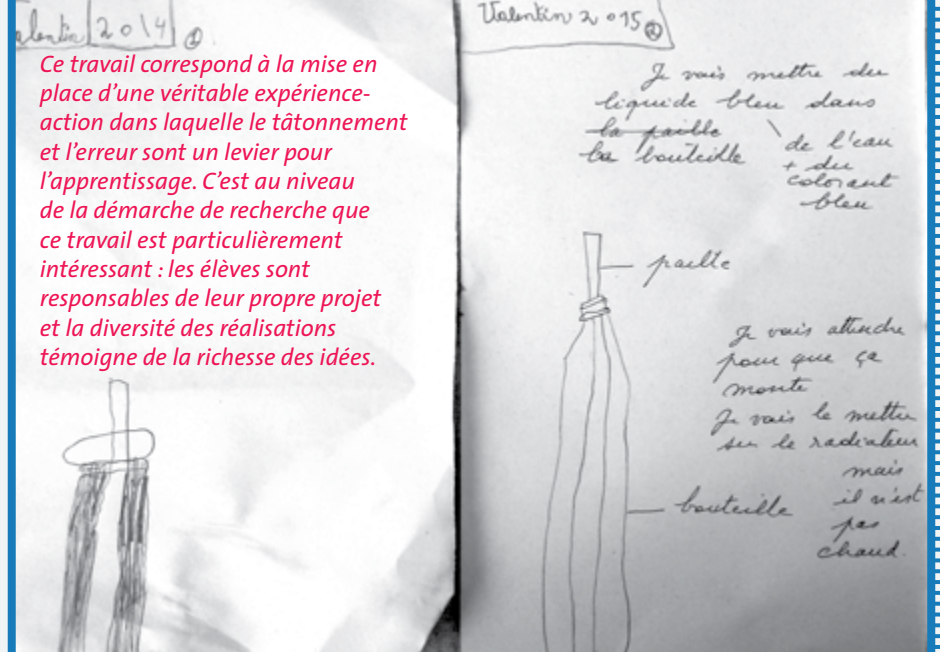 Valentin 2014 ①
Ce travail correspond à la mise en
place d'une véritable expérience-
action dans laquelle le tâtonnement
et l'erreur sont un levier pour
l'apprentissage. C'est au niveau
de la démarche de recherche que
ce travail est particulièrement
intéressant : les élèves sont
responsables de leur propre projet
et la diversité des réalisations
témoigne de la richesse des idées.
Valentin 2015 ②
Je vais mettre du
liquide bleu dans
la paille
la bouteille
de l'eau
+ du
colorant
bleu
paille
Je vais attendre
pour que ça
monte
Je vais le mettre
sur le radiateur
mais
il n'est
pas
chaud.
bouteille